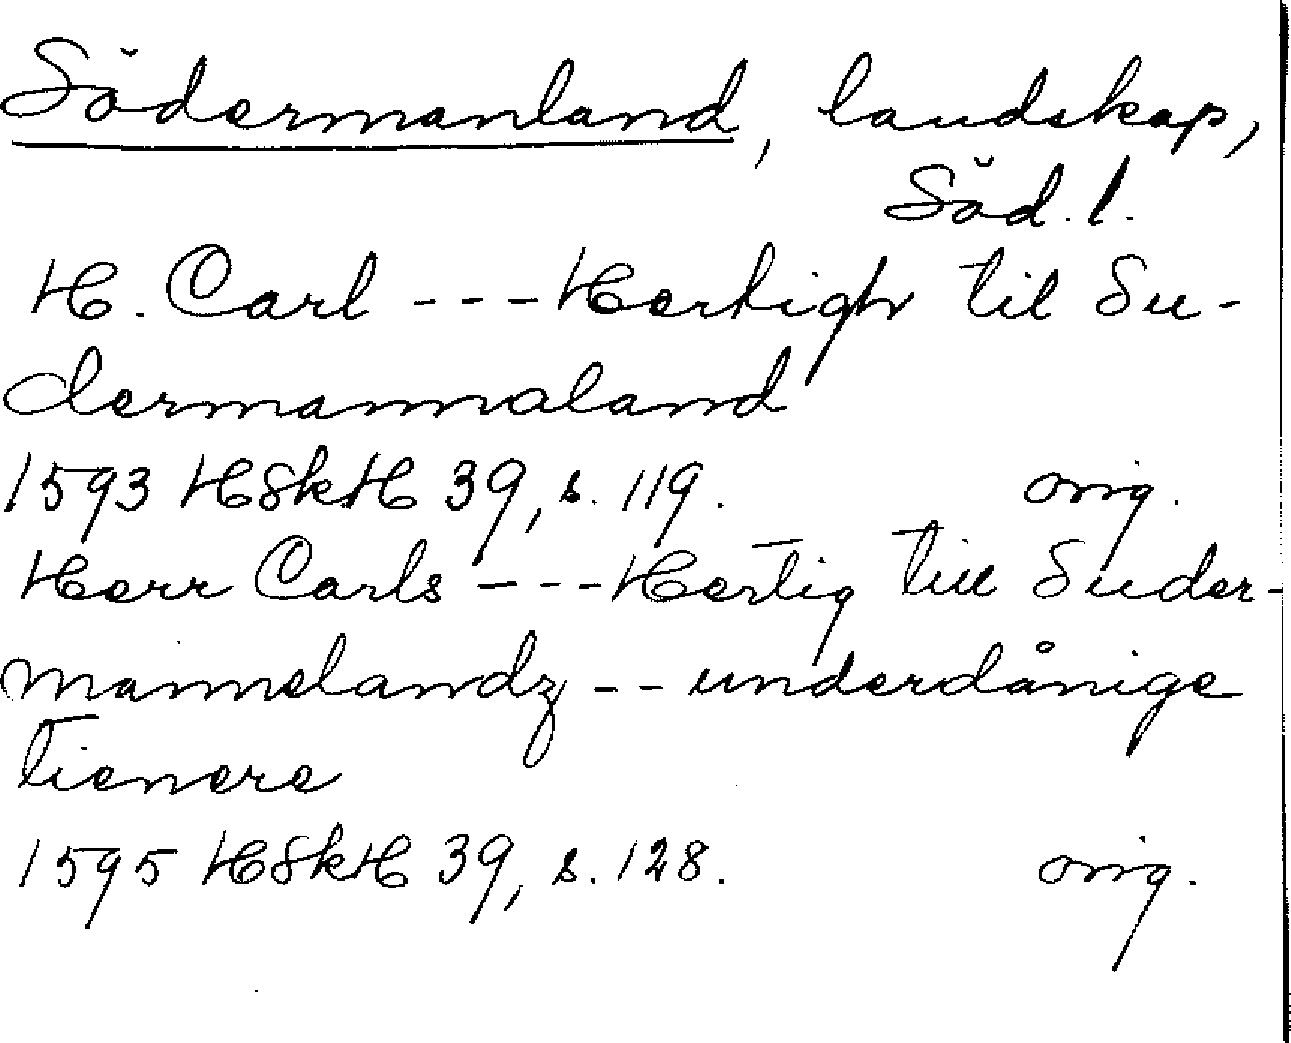 Södermanland, landskap,
Söd. l.
H. Carl --- Hertigh til Su-
dermannaland
1593 HSkH 39, s. 119. orig.
Herr Carls --- Hertig till Suder-
mannelandz -- underdånige
tienere
1595 HSkH 39, s. 128. orig.